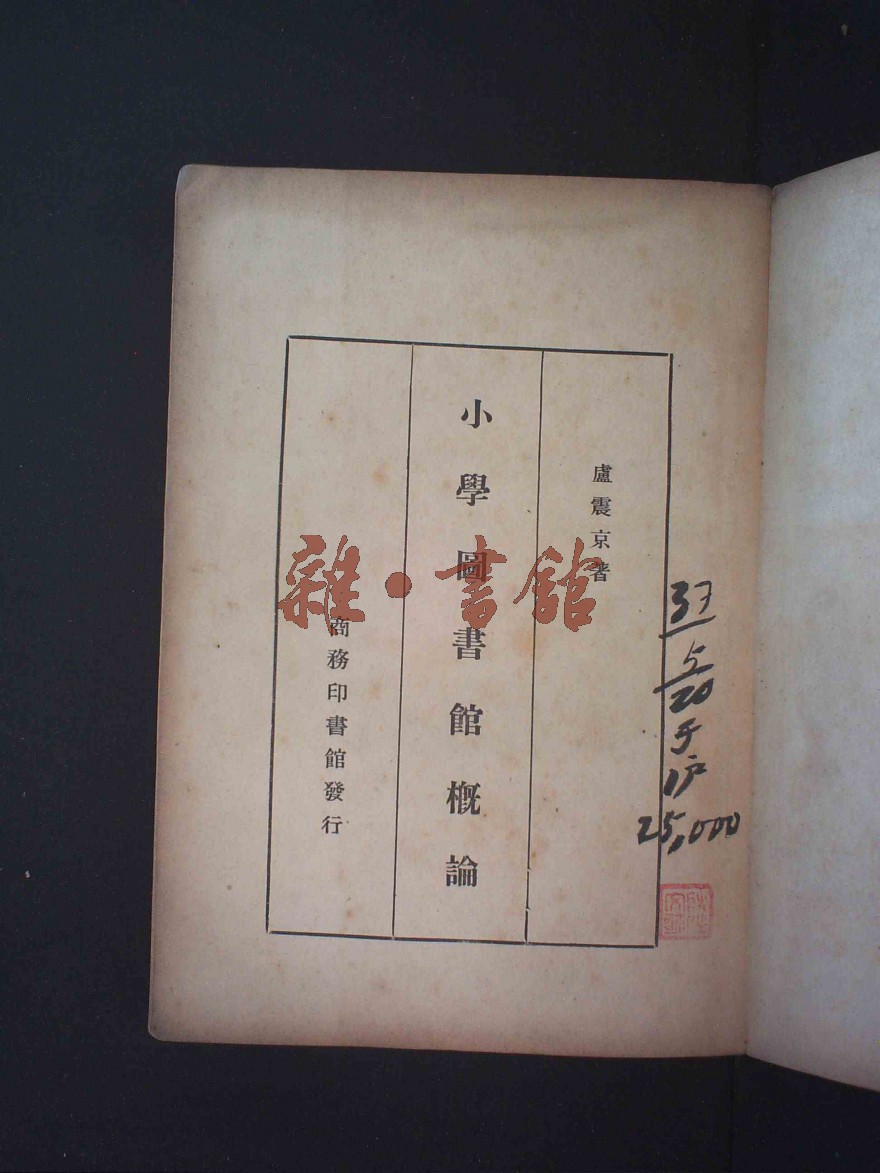 盧震京著
小學圖書館概論
商務印書館發行
雜·書館
5/20
于沪
25,000